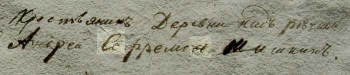 Крестьянинъ Деревни надъ рѣчкѣ
Андрей Ефремовъ Шишкинъ.